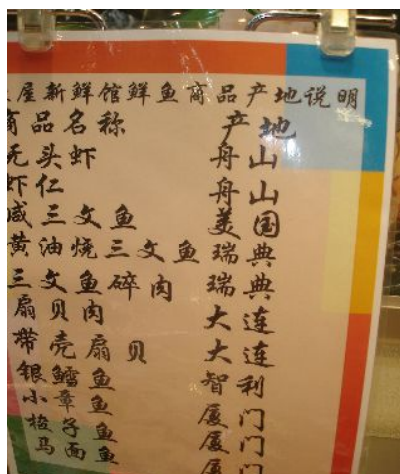 屋新鲜馆鲜鱼商品产地说明
商品名称 产地
无头虾 舟山
虾仁 舟山
咸三文鱼 美国
黄油烧三文鱼 瑞典
三文鱼碎肉 瑞典
扇贝肉 大连
带壳扇贝 大连
银鳕鱼 智利
小章鱼 厦门
梭子鱼 厦门
马面鱼 厦门